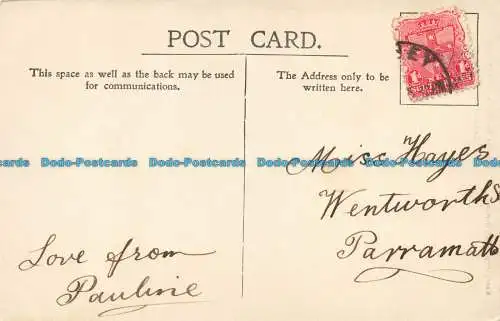 POST CARD.
This space as well as the back may be used
for communications.
The Address only to be
written here.
SEY
1D
1D
Dodo-Postcards Dodo-Postcards Dodo-Postcards Dodo-Postcards
Miss Hayes
Wentworth S
Parramatt
Love from
Pauline